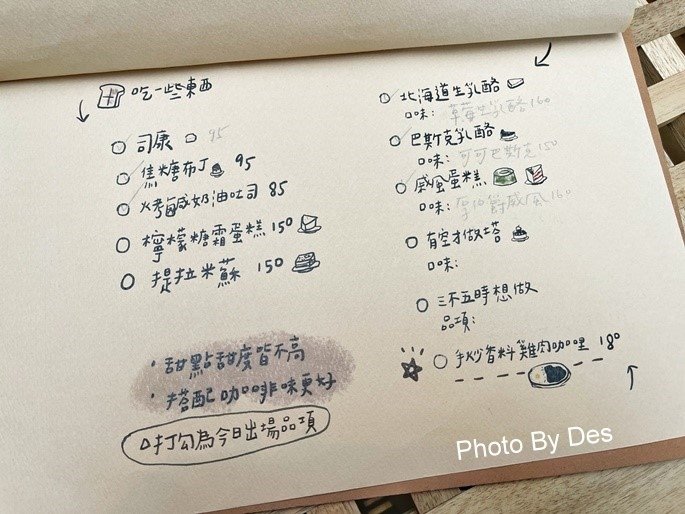 吃一些東西
司康 95
焦糖布丁 95
烤鹹奶油吐司 85
檸檬糖霜蛋糕 150
提拉米蘇 150
・甜點甜度皆不高
・搭配咖啡味更好
△打勾為今日出場品項
北海道生乳酪
口味：草莓生乳酪 160
巴斯克乳酪
口味：可可巴斯克 150
戚風蛋糕
口味：厚伯爵戚風 160
有空才做塔
口味：
三不五時想做
品項：
手炒香料雞肉咖哩 180
Photo By Des